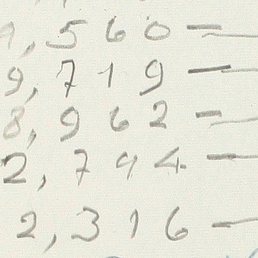 1,560 —
9,719 —
8,962 —
2,794 —
2,316 —